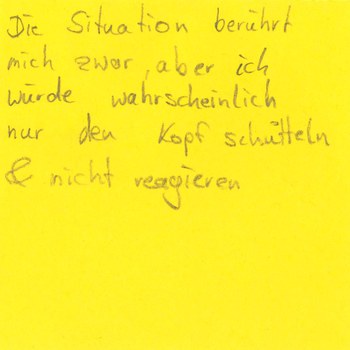 Die Situation berührt
mich zwar, aber ich
würde wahrscheinlich
nur den Kopf schütteln
& nicht reagieren